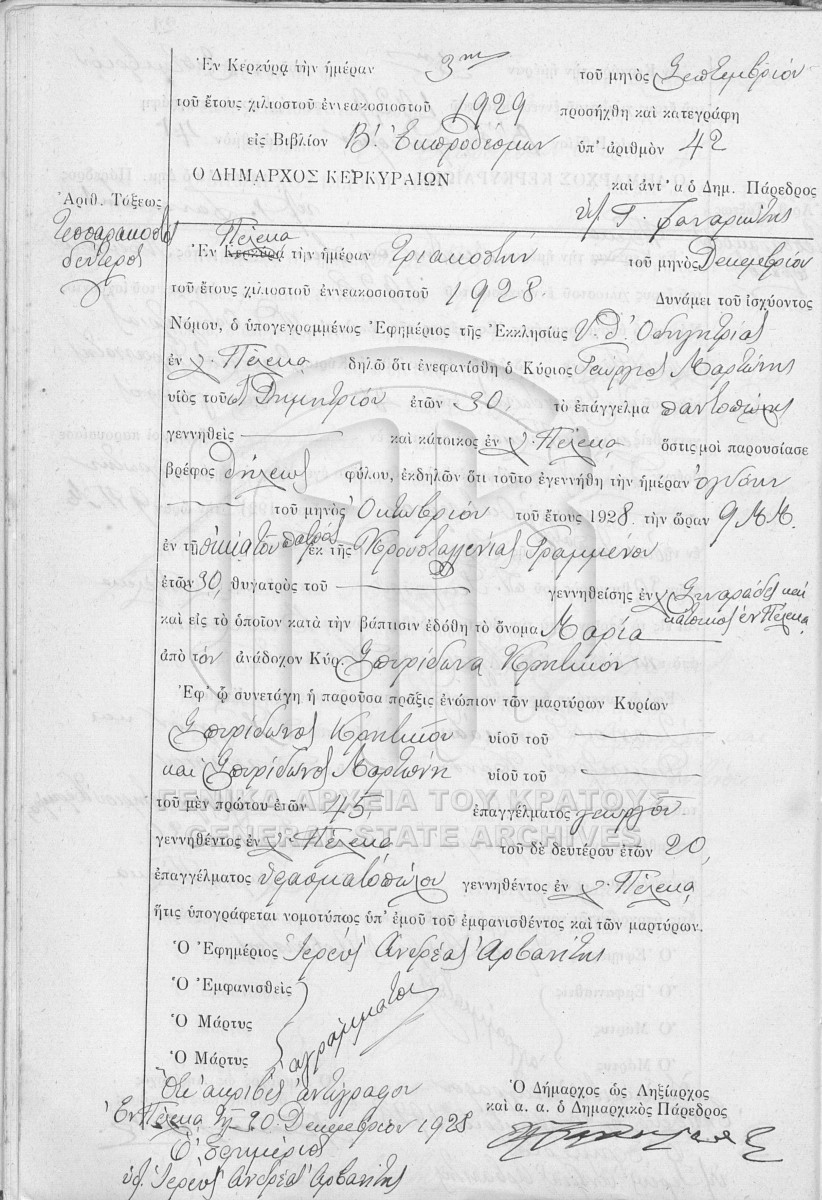 Ἐν Κερκύρᾳ τὴν ἡμέραν 3ην τοῦ μηνὸς Σεπτεμβρίου
τοῦ ἔτους χιλιοστοῦ ἐννεακοσιοστοῦ 1929 προσήχθη καὶ κατεγράφη
εἰς Βιβλίον Β! Ἐκπροθέσμων ὑπ' ἀριθμὸν 42
Ο ΔΗΜΑΡΧΟΣ ΚΕΡΚΥΡΑΙΩΝ
καὶ ἀντ' α ὁ Δημ. Πάρεδρος
Ἀριθ. Τάξεως
Τεσσαρακοστὸς
δεύτερος
Πέλεκα
Ἐν Κερκύρᾳ τὴν ἡμέραν τριακοστὴν τοῦ μηνὸς Δεκεμβρίου
τοῦ ἔτους χιλιοστοῦ ἐννεακοσιοστοῦ 1928. Δυνάμει τοῦ ἰσχύοντος
Νόμου, ὁ ὑπογεγραμμένος Ἐφημέριος τῆς Ἐκκλησίας Ὁδηγητρίας
ἐν χ. Πέλεκα δηλῶ ὅτι ἐνεφανίσθη ὁ Κύριος Γεώργιος Μαρτίνης
υἱὸς τοῦ Δημητρίου ἐτῶν 30, τὸ ἐπάγγελμα παντοπώλης
γεννηθεὶς — καὶ κάτοικος ἐν χ. Πέλεκα ὅστις μοὶ παρουσίασε
βρέφος θήλεως φύλου, ἐκδηλῶν ὅτι τοῦτο ἐγεννήθη τὴν ἡμέραν ὀγδόην
— τοῦ μηνὸς Ὀκτωβρίου τοῦ ἔτους 1928. τὴν ὥραν 9 Μ.Μ.
ἐν τῇ οἰκίᾳ τοῦ πατρός ἐκ τῆς Κρουσταλλενίας Γραμμένου
ἐτῶν 30, θυγατρὸς τοῦ — γεννηθείσης ἐν χ Σιναράδες καὶ
κάτοικος ἐν Πέλεκα
καὶ εἰς τὸ ὁποῖον κατὰ τὴν βάπτισιν ἐδόθη τὸ ὄνομα Μαρία
ἀπὸ τόν ἀνάδοχον Κύρ. Σπυρίδωνα Κρητικόν
Ἐφ' ᾧ συνετάγη ἡ παροῦσα πρᾶξις ἐνώπιον τῶν μαρτύρων Κυρίων
Σπυρίδωνος Κρητικοῦ υἱοῦ τοῦ —
καὶ Σπυρίδωνος Μαρτίνη υἱοῦ τοῦ —
ΓΕΝΙΚΑ ΑΡΧΕΙΑ ΤΟΥ ΚΡΑΤΟΥΣ
τοῦ μὲν πρώτου ἐτῶν 45, ἐπαγγέλματος γεωργοῦ
GENERAL STATE ARCHIVES
γεννηθέντος ἐν χ. Πέλεκα τοῦ δὲ δευτέρου ἐτῶν 20,
ἐπαγγέλματος ὑφασματοπώλου γεννηθέντος ἐν χ. Πέλεκα
ἥτις ὑπογράφεται νομοτύπως ὑπ' ἐμοῦ τοῦ ἐμφανισθέντος καὶ τῶν μαρτύρων.
Ὁ Ἐφημέριος Ἱερεὺς Ἀνδρέας Ἀρβανίτης
Ὁ Ἐμφανισθεὶς
Ὁ Μάρτυς
Ὁ Μάρτυς
ἀγράμματοι
Ὅτι ἀκριβὲς ἀντίγραφον
Ἐν Πέλεκα τῇ 20 Δεκεμβρίου 1928
Ὁ ἐφημέριος
ὑπ. Ἱερεὺς Ἀνδρέας Ἀρβανίτης
Ὁ Δήμαρχος ὡς Ληξίαρχος
καὶ α. α. ὁ Δημαρχικὸς Πάρεδρος